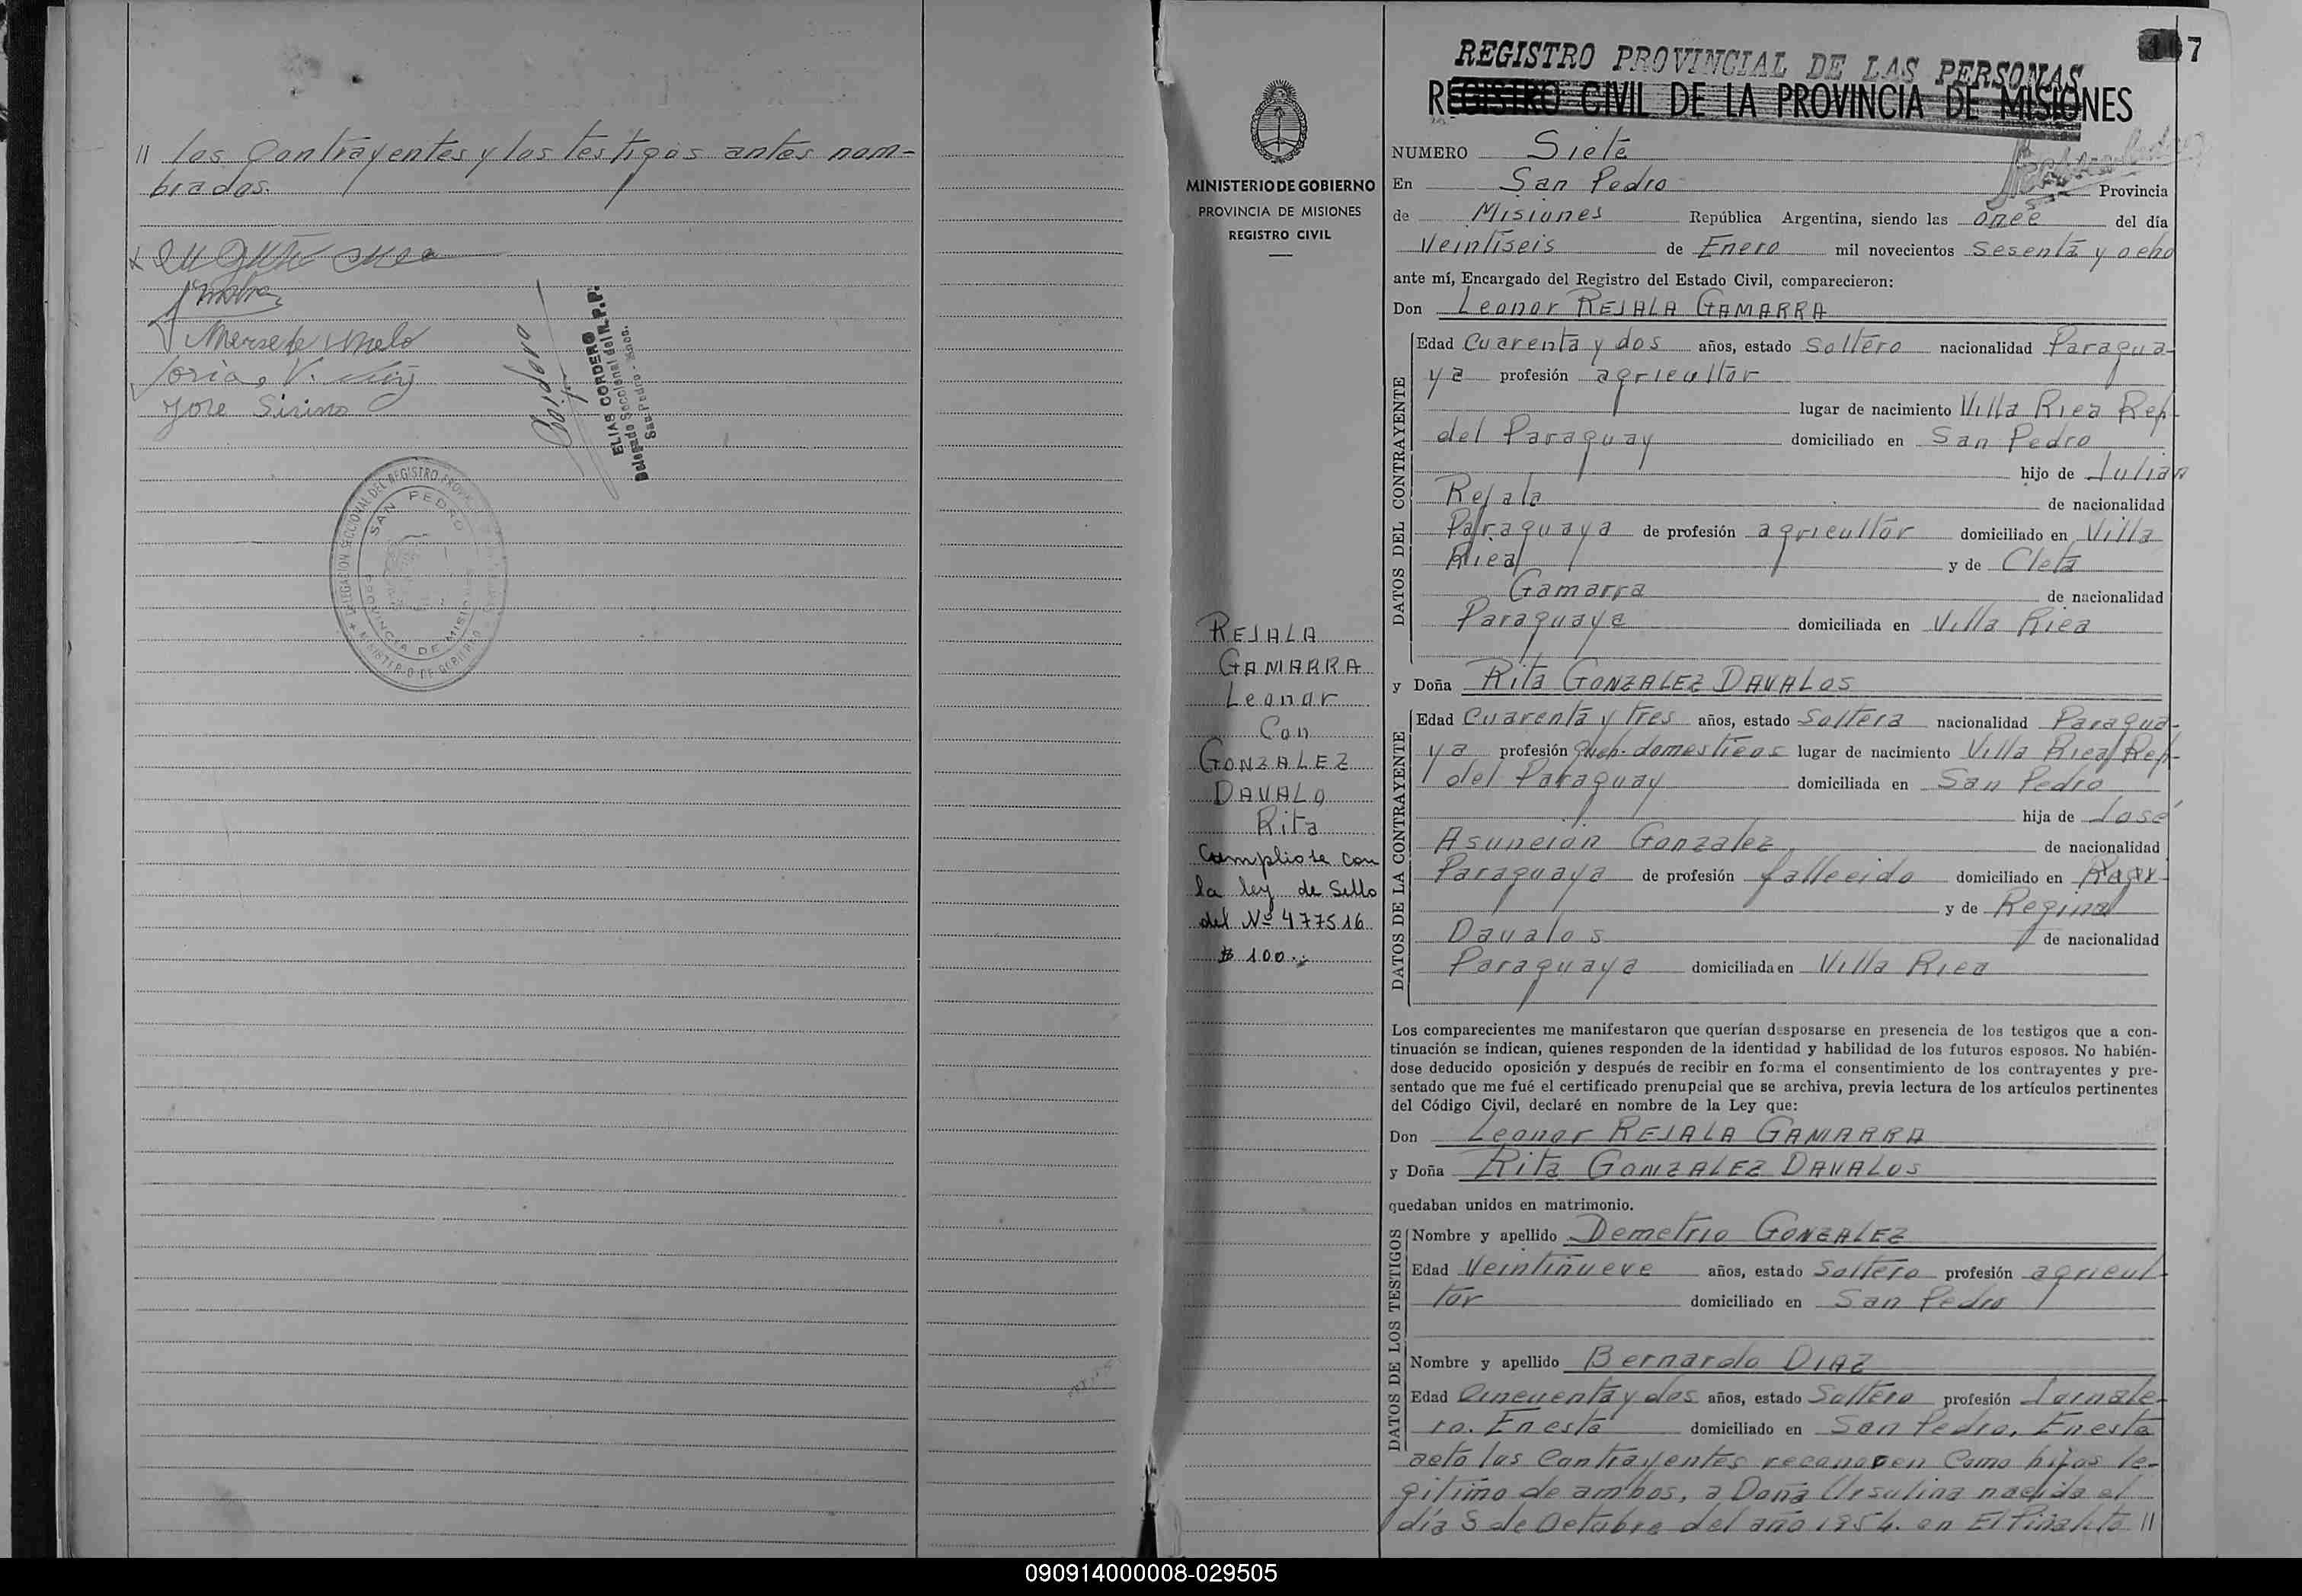 // los Contrayentes y los testigos antes nom-
brados.
Mersede Melo
Jose Sirino
ELIAS CORDERO
Delegado Seccional del R.P.P.
San Pedro - Mnes.
DELEGACION SECCIONAL DEL REGISTRO
SAN PEDRO
PROVINCIA DE MISIONES
MINISTERIO DE GOBIERNO
7
REGISTRO PROVINCIAL DE LAS PERSONAS
REGISTRO CIVIL DE LA PROVINCIA DE MISIONES
MINISTERIO DE GOBIERNO
PROVINCIA DE MISIONES
REGISTRO CIVIL
REJALA
GAMARRA
Leonor
Con
GONZALEZ
DAVALO
Rita
Cumpliose con
la ley de Sello
del Nº 477516
$ 100.-
NUMERO Siete
En San Pedro Provincia
de Misiones República Argentina, siendo las once del día
Veintiseis de Enero mil novecientos sesenta y ocho
ante mí, Encargado del Registro del Estado Civil, comparecieron:
Don Leonor REJALA GAMARRA
DATOS DEL CONTRAYENTE
Edad Cuarenta y dos años, estado Soltero nacionalidad Paragua-
ya profesión agricultor
lugar de nacimiento Villa Rica Rep-
del Paraguay domiciliado en San Pedro
hijo de Julian
Rejala de nacionalidad
Paraguaya de profesión agricultor domiciliado en Villa
Rica y de Cleta
Gamarra de nacionalidad
Paraguaya domiciliada en Villa Rica
y Doña Rita GONZALEZ DAVALOS
DATOS DE LA CONTRAYENTE
Edad Cuarenta y tres años, estado Soltera nacionalidad Paragua-
ya profesión Queh. domesticos lugar de nacimiento Villa Rica Rep-
del Paraguay domiciliada en San Pedro
hija de José
Asunción Gonzalez de nacionalidad
Paraguaya de profesión fallecido domiciliado en
y de Regina
Davalos de nacionalidad
Paraguaya domiciliada en Villa Rica
Los comparecientes me manifestaron que querían desposarse en presencia de los testigos que a con-
tinuación se indican, quienes responden de la identidad y habilidad de los futuros esposos. No habién-
dose deducido oposición y después de recibir en forma el consentimiento de los contrayentes y pre-
sentado que me fué el certificado prenupcial que se archiva, previa lectura de los artículos pertinentes
del Código Civil, declaré en nombre de la Ley que:
Don Leonor REJALA GAMARRA
y Doña Rita GONZALEZ DAVALOS
quedaban unidos en matrimonio.
DATOS DE LOS TESTIGOS
Nombre y apellido Demetrio GONZALEZ
Edad Veintinueve años, estado Soltero profesión agricul-
tor domiciliado en San Pedro
Nombre y apellido Bernardo DIAZ
Edad Cincuenta y dos años, estado Soltero profesión Jornale-
ro. En esta domiciliado en San Pedro, En esta
acto los Contrayentes reconocen Como hijos le-
gitimo de ambos, a Doña Ursulina nacida el
día 5 de Octubre del año 1954. en El Piñalito //
090914000008-029505